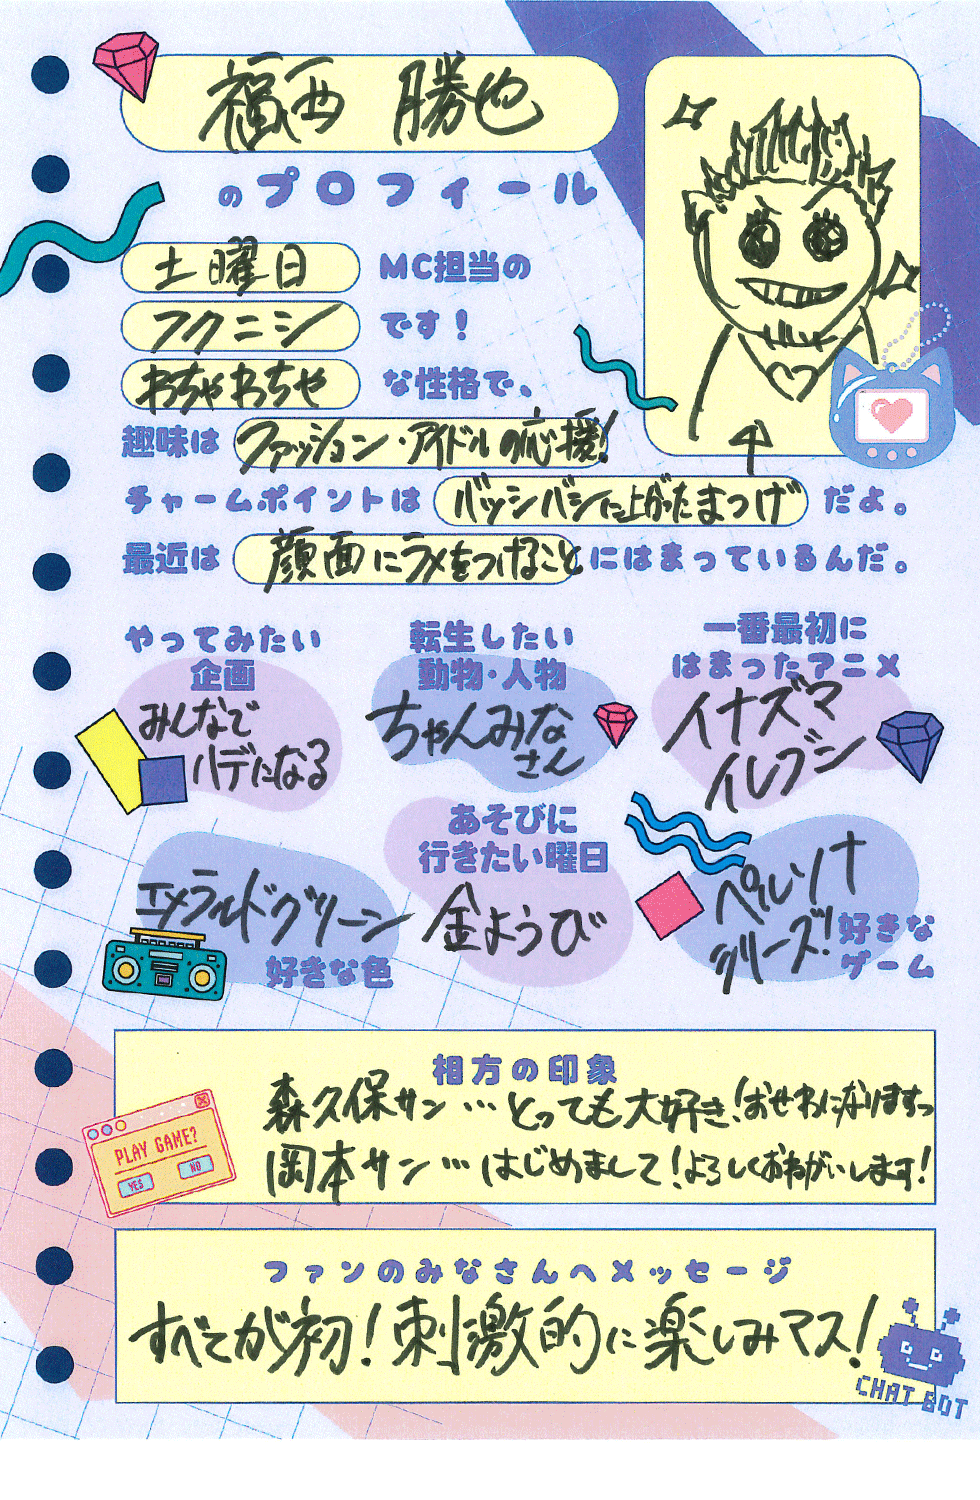 福西 勝也
のプロフィール
土曜日 MC担当の
フクニシ です！
わちゃわちゃ な性格で、
趣味は ファッション・アイドルの応援！
チャームポイントは バッシバシに上がったまつげ だよ。
最近は 顔面にラメをつけること にはまっているんだ。
やってみたい
企画
みんなで
ハデになる
転生したい
動物・人物
ちゃんみな
さん
一番最初に
はまったアニメ
イナズマ
イレブン
エメラルドグリーン
好きな色
あそびに
行きたい曜日
金ようび
ペルソナ
シリーズ！
好きな
ゲーム
相方の印象
森久保サン…とっても大好き！おせわになりますっ
岡本サン…はじめまして！よろしくおねがいします！
PLAY GAME?
YES
NO
ファンのみなさんへメッセージ
すべてが初！刺激的に楽しみマス！
CHAT BOT